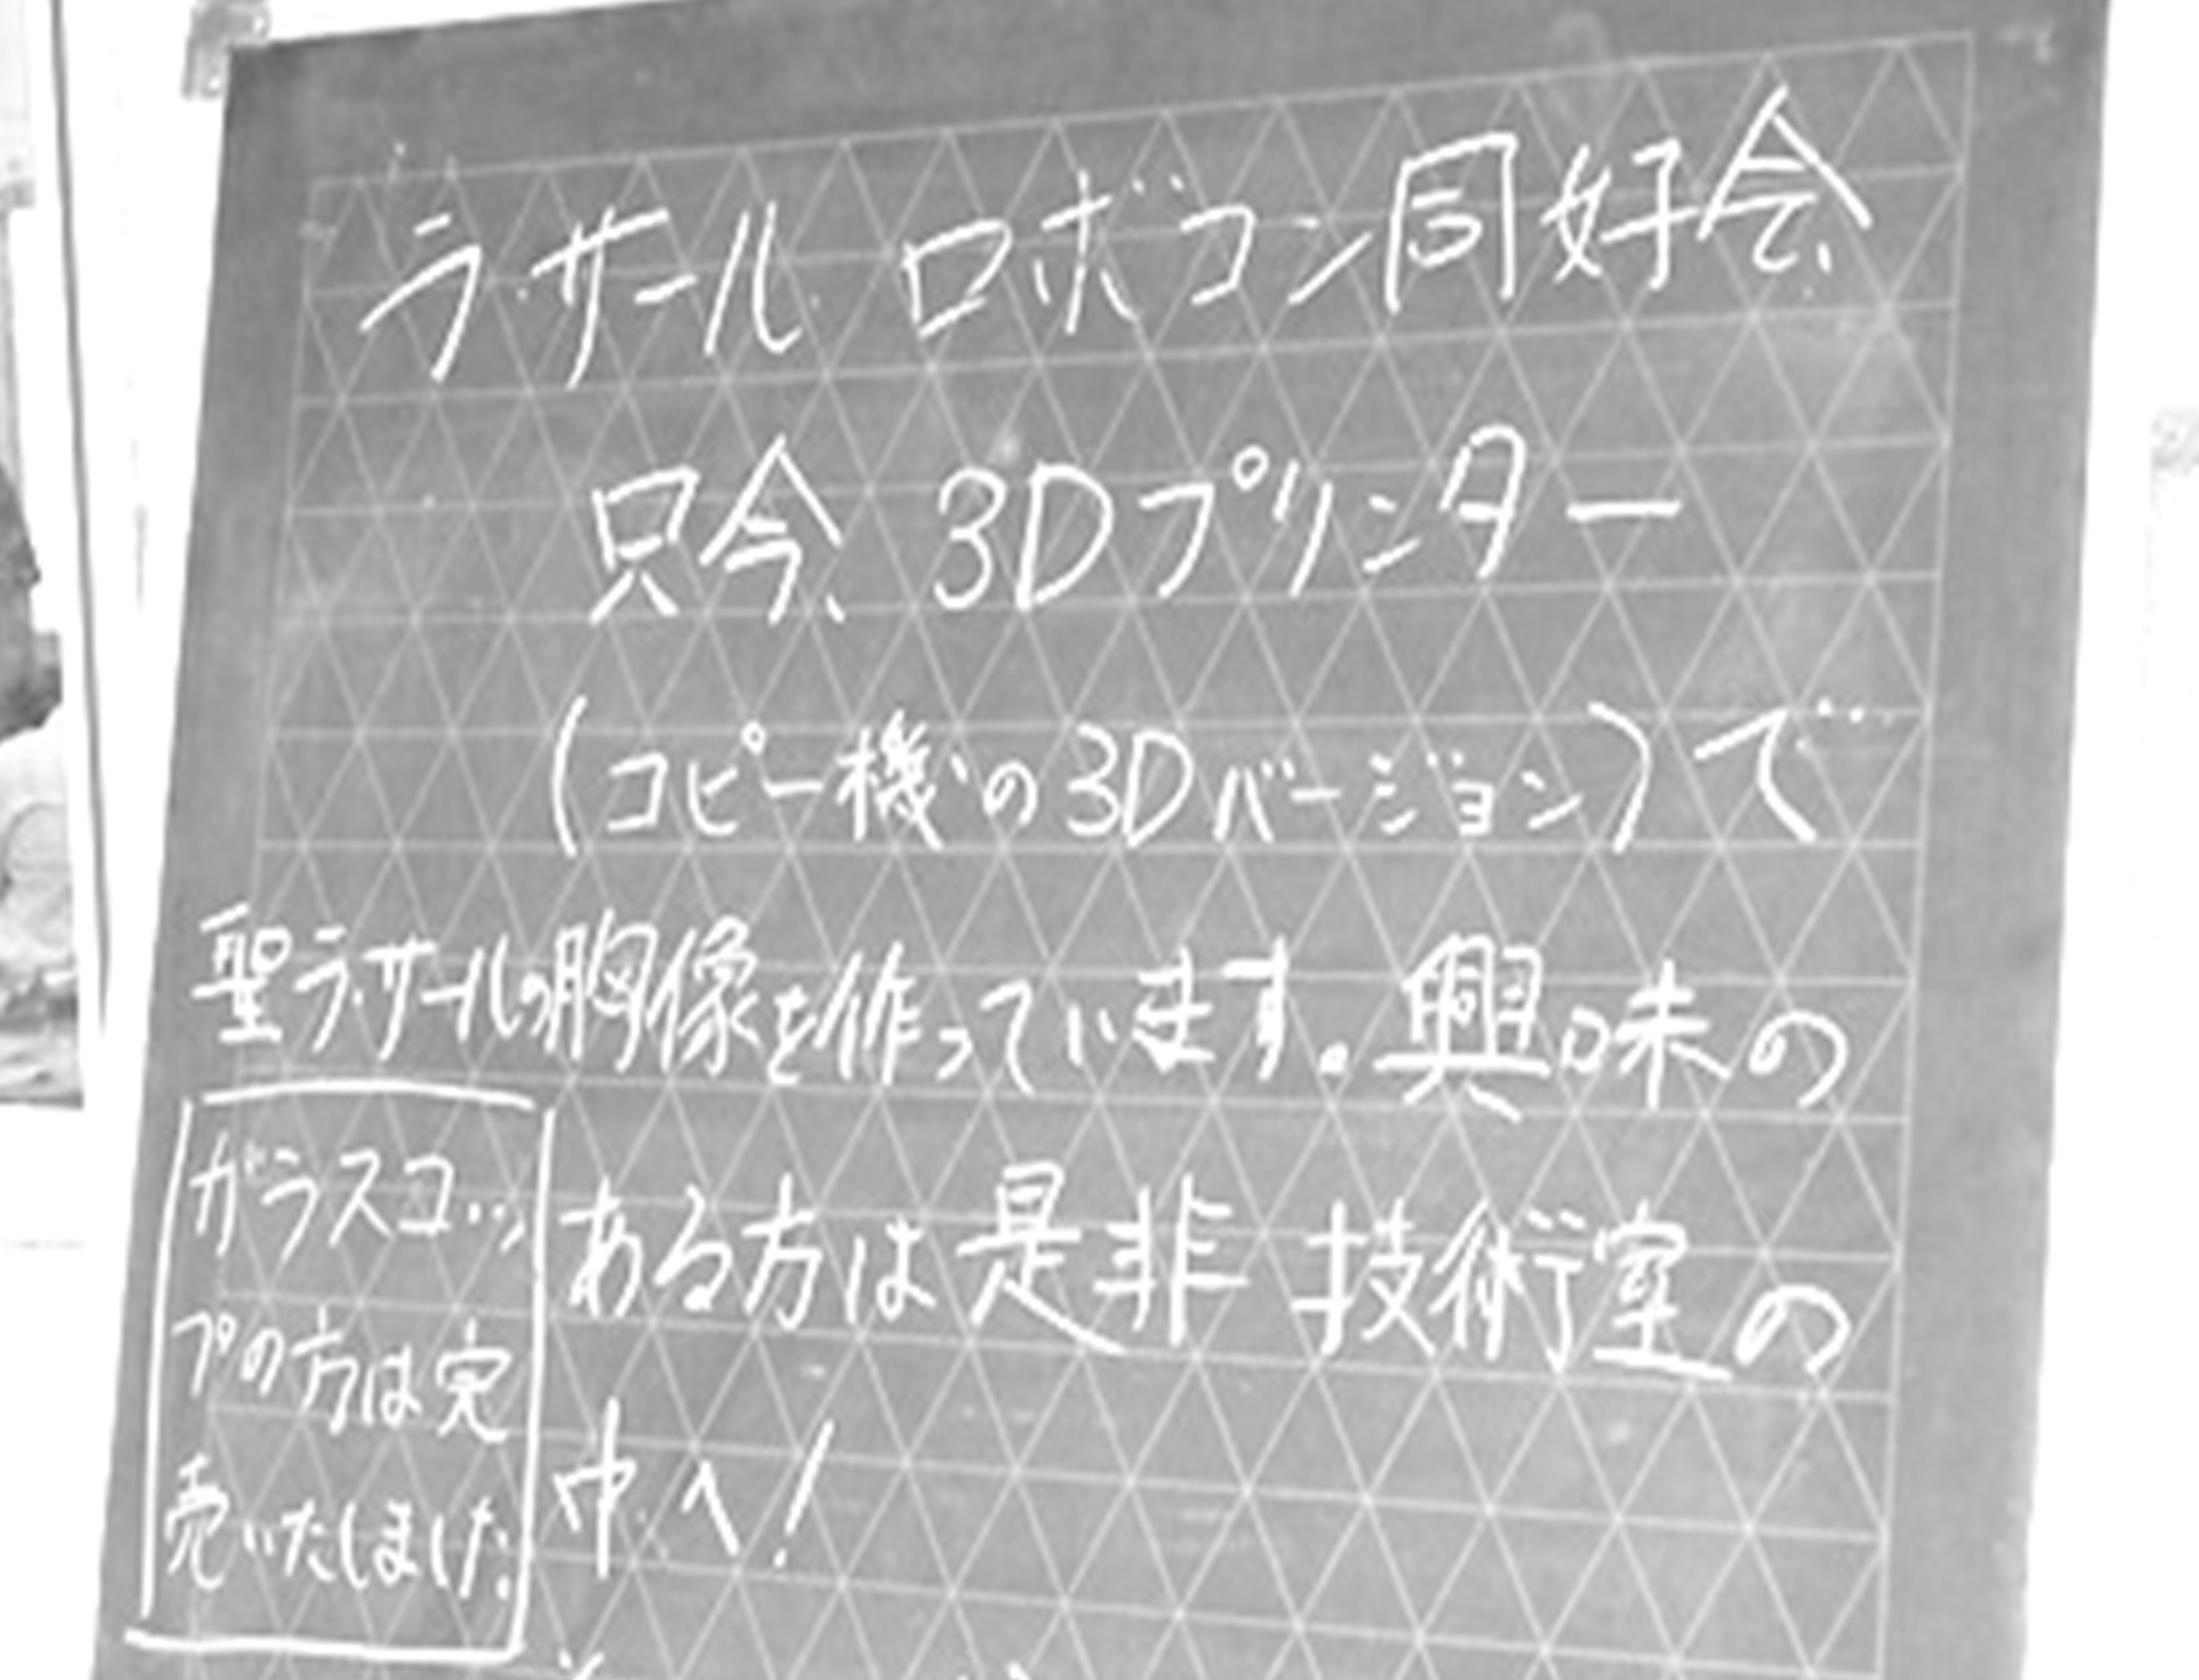 ラ・サール ロボコン同好会
只今、3Dプリンター
(コピー機の3Dバージョン)で
聖ラ・サールの胸像を作っています。興味の
ある方は是非 技術室の
中へ!
ガラスコッ
プの方は完
売いたしました。